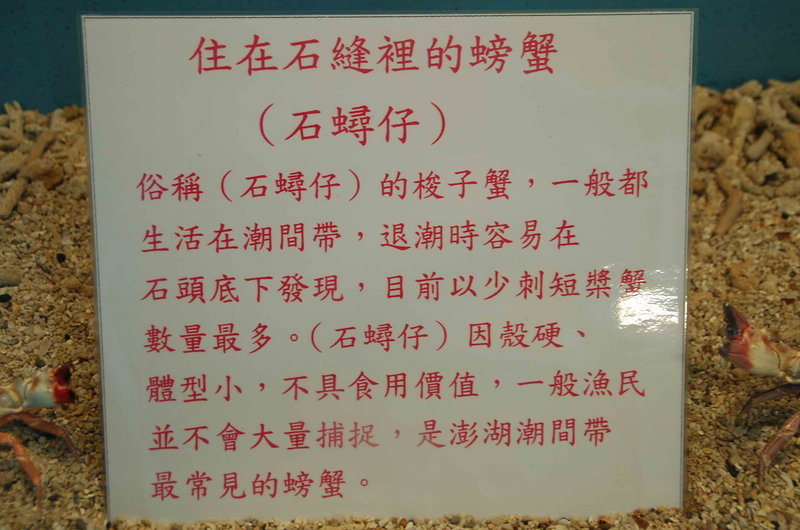 住在石縫裡的螃蟹
（石蟳仔）
俗稱（石蟳仔）的梭子蟹，一般都
生活在潮間帶，退潮時容易在
石頭底下發現，目前以少刺短槳蟹
數量最多。（石蟳仔）因殼硬、
體型小，不具食用價值，一般漁民
並不會大量捕捉，是澎湖潮間帶
最常見的螃蟹。